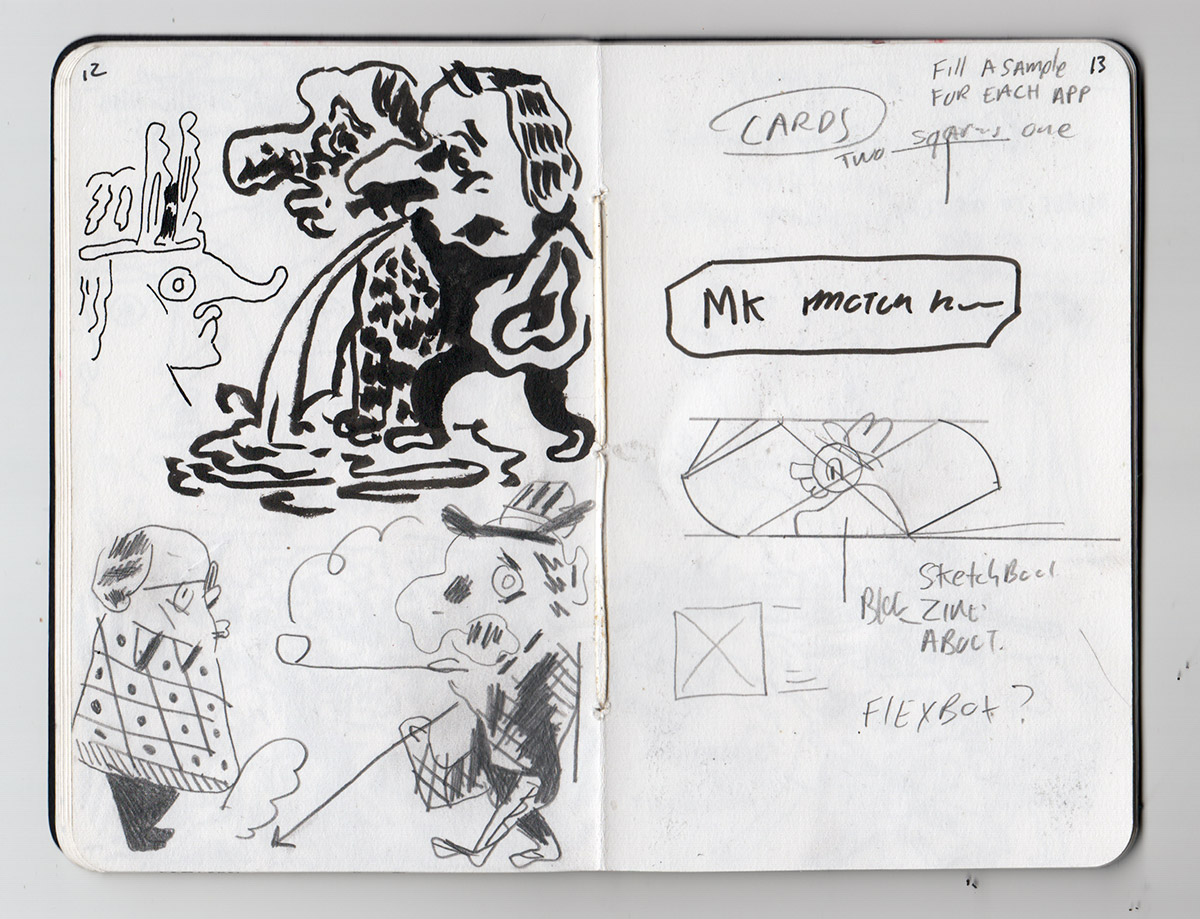 12
Fill A SAMPLE 13
FOR EACH APP
CARDS
TWO squares one
MK
SketchBook
Blog ZINE
ABOUT.
FlEXBOX?